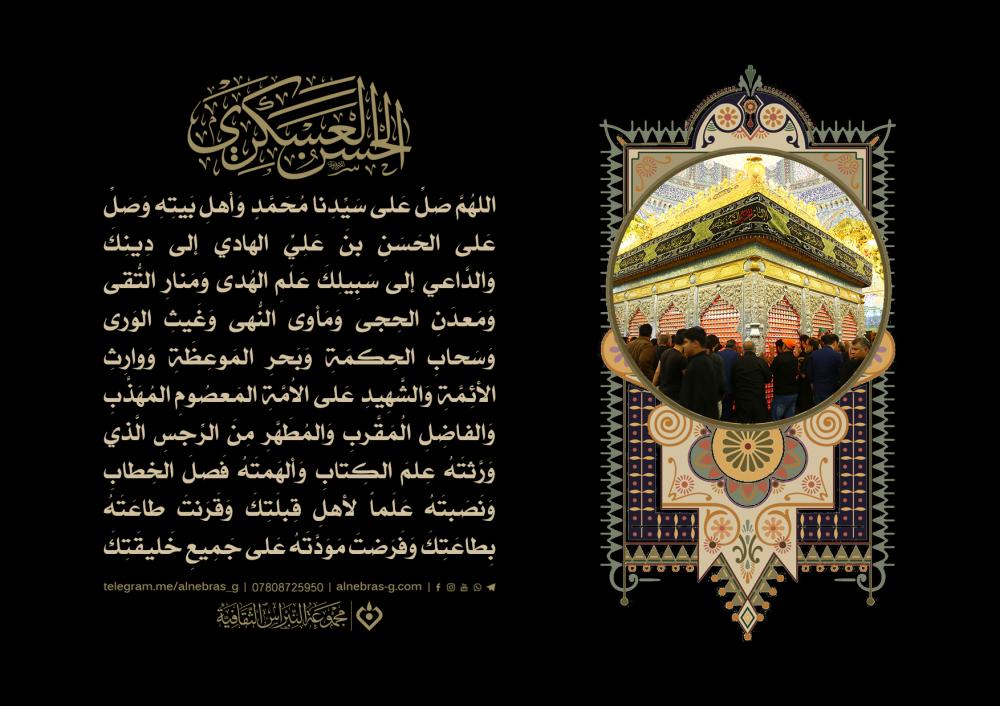 الحسن العسكري
اللهُمَّ صَلِّ عَلى سَيِّدِنا مُحمَّدٍ وَأهلِ بَيتِه وَصَلِّ
عَلى الحَسَنِ بنِ عَلِيٍّ الهادي إلى دِينِكَ
وَالدَّاعي إلى سَبِيلِكَ عَلَمِ الهُدى وَمَنارِ التُّقى
وَمَعدَنِ الحجى وَمَأوى النُّهى وَغَيثِ الوَرى
وَسَحابِ الحِكمَةِ وَبَحرِ المَوعِظَةِ وَوارِثِ
الأئِمَّةِ وَالشَّهِيدِ عَلى الاُمَّةِ المَعصُومِ المُهَذَّبِ
وَالفاضِلِ المُقَرَّبِ وَالمُطَهَّرِ مِنَ الرِّجسِ الَّذي
وَرَّثتَهُ عِلمَ الكِتابِ وَألهَمتَهُ فَصلَ الخِطابِ
وَنَصَبتَهُ عَلَماً لأهلِ قِبلَتِكَ وَقَرَنتَ طاعَتَهُ
بِطاعَتِكَ وَفَرَضتَ مَوَدَّتَهُ عَلى جَمِيعِ خَلِيقَتِكَ
telegram.me/alnebras_g | 07808725950 | alnebras-g.com |
مجموعة النبراس الثقافية